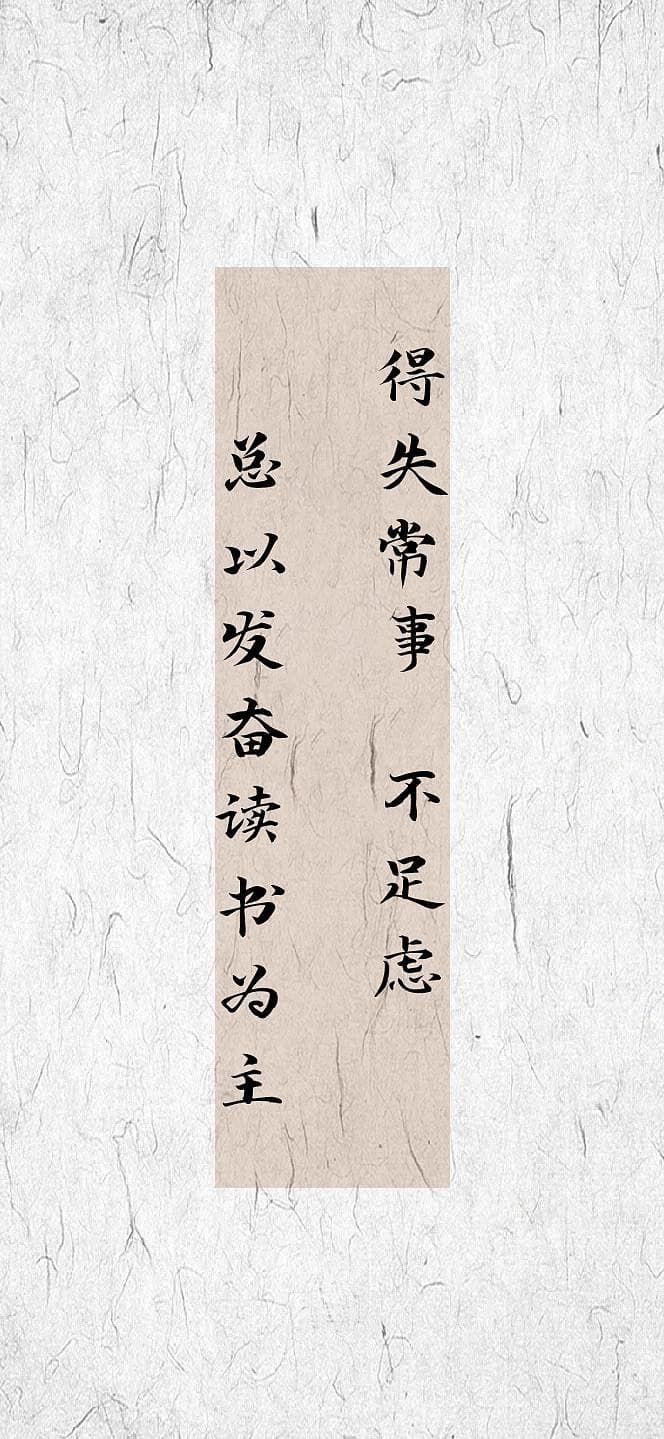 得失常事 不足虑
总以发奋读书为主